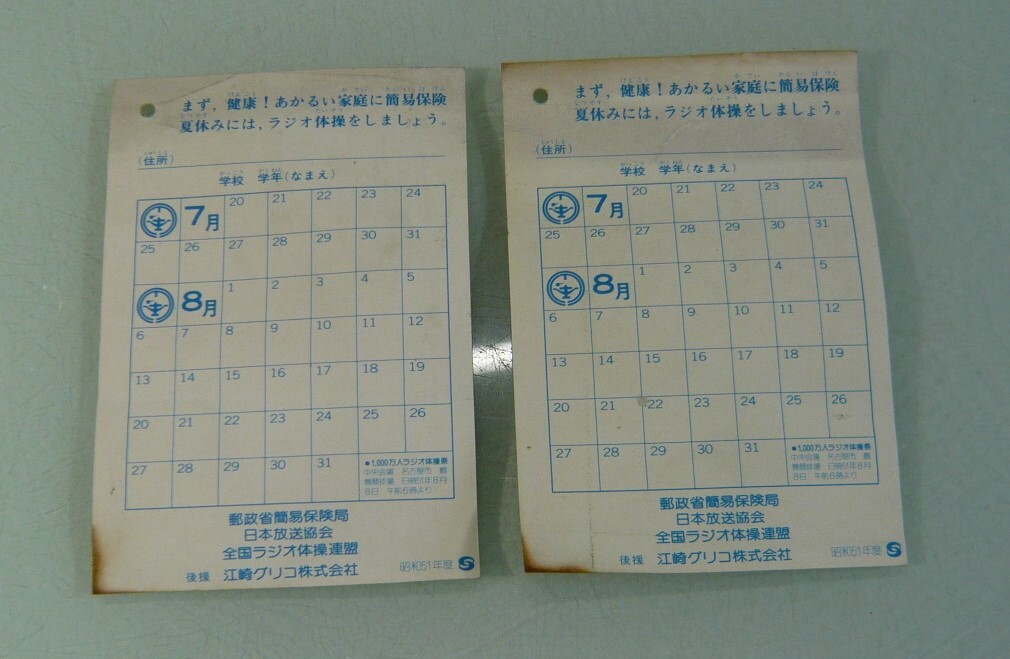 まず,健康!あかるい家庭に簡易保険
夏休みには,ラジオ体操をしましょう。
(住所)
学校 学年(なまえ)
7月 20 21 22 23 24
25 26 27 28 29 30 31
8月 1 2 3 4 5
6 7 8 9 10 11 12
13 14 15 16 17 18 19
20 21 22 23 24 25 26
27 28 29 30 31
●1,000万人ラジオ体操祭
中央会場 名古屋市
8日 午前6時より
郵政省簡易保険局
日本放送協会
全国ラジオ体操連盟
後援 江崎グリコ株式会社
昭和51年度 S
まず,健康!あかるい家庭に簡易保険
夏休みには,ラジオ体操をしましょう。
(住所)
学校 学年(なまえ)
7月 20 21 22 23 24
25 26 27 28 29 30 31
8月 1 2 3 4 5
6 7 8 9 10 11 12
13 14 15 16 17 18 19
20 21 22 23 24 25 26
27 28 29 30 31
●1,000万人ラジオ体操祭
中央会場 名古屋市
8日 午前6時より
郵政省簡易保険局
日本放送協会
全国ラジオ体操連盟
後援 江崎グリコ株式会社
昭和51年度 S